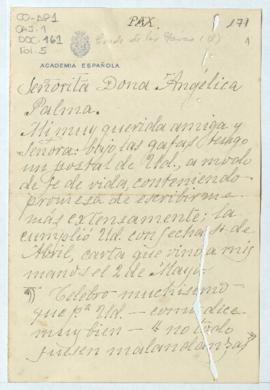 CO-AP1
CAJ. 1
DOC. 161
Fol. 5
PAX.
171
1
ACADEMIA ESPAÑOLA
Señorita Doña Angélica
Palma.
Mi muy querida amiga y
Señora: bajo las gafas tengo
un postal de Ud., a modo
de fe de vida, conteniendo
promesa de escribirme
más extensamente; la
cumplió Ud. con fecha de
Abril, carta que vino a mis
manos el 2 de Mayo.
Celebro muchísimo
que pª Ud. — como dice
muy bien — no todo
fuesen malandanzas